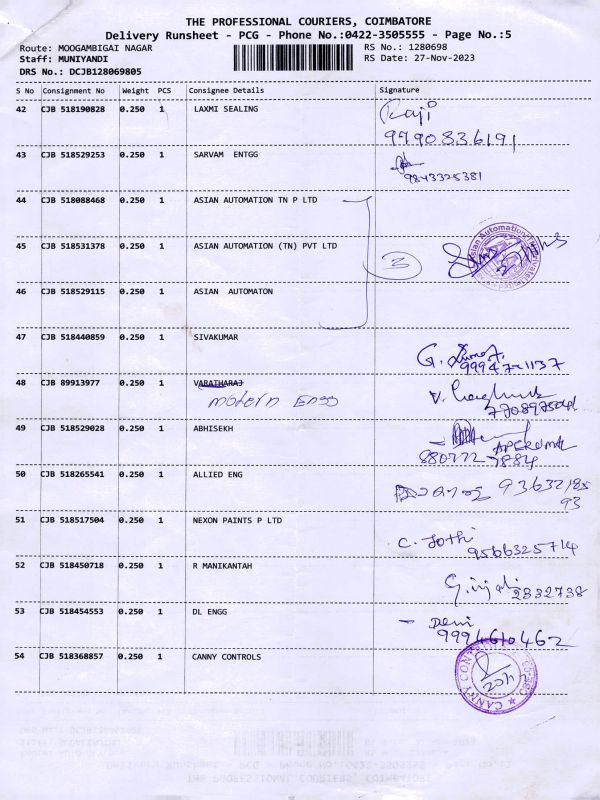 THE PROFESSIONAL COURIERS, COIMBATORE
Delivery Runsheet - PCG - Phone No.:0422-3505555 - Page No.:5
Route: MOOGAMBIGAI NAGAR RS No.: 1280698
Staff: MUNIYANDI RS Date: 27-Nov-2023
DRS No.: DCJB128069805
S No Consignment No Weight PCS Consignee Details Signature
42 CJB 518190828 0.250 1 LAXMI SEALING Raji
9990836191
43 CJB 518529253 0.250 1 SARVAM ENTGG
9843325381
44 CJB 518088468 0.250 1 ASIAN AUTOMATION TN P LTD
45 CJB 518531378 0.250 1 ASIAN AUTOMATION (TN) PVT LTD 3
46 CJB 518529115 0.250 1 ASIAN AUTOMATON
47 CJB 518440859 0.250 1 SIVAKUMAR
48 CJB 89913977 0.250 1 VARATHARAJ
Modern Engg
49 CJB 518529028 0.250 1 ABHISEKH
APERUMAL
50 CJB 518265541 0.250 1 ALLIED ENG 93632185
93
51 CJB 518517504 0.250 1 NEXON PAINTS P LTD C. Jothi
9566325714
52 CJB 518450718 0.250 1 R MANIKANTAH
2332738
53 CJB 518454553 0.250 1 DL ENGG - Devi
9994610462
54 CJB 518368857 0.250 1 CANNY CONTROLS